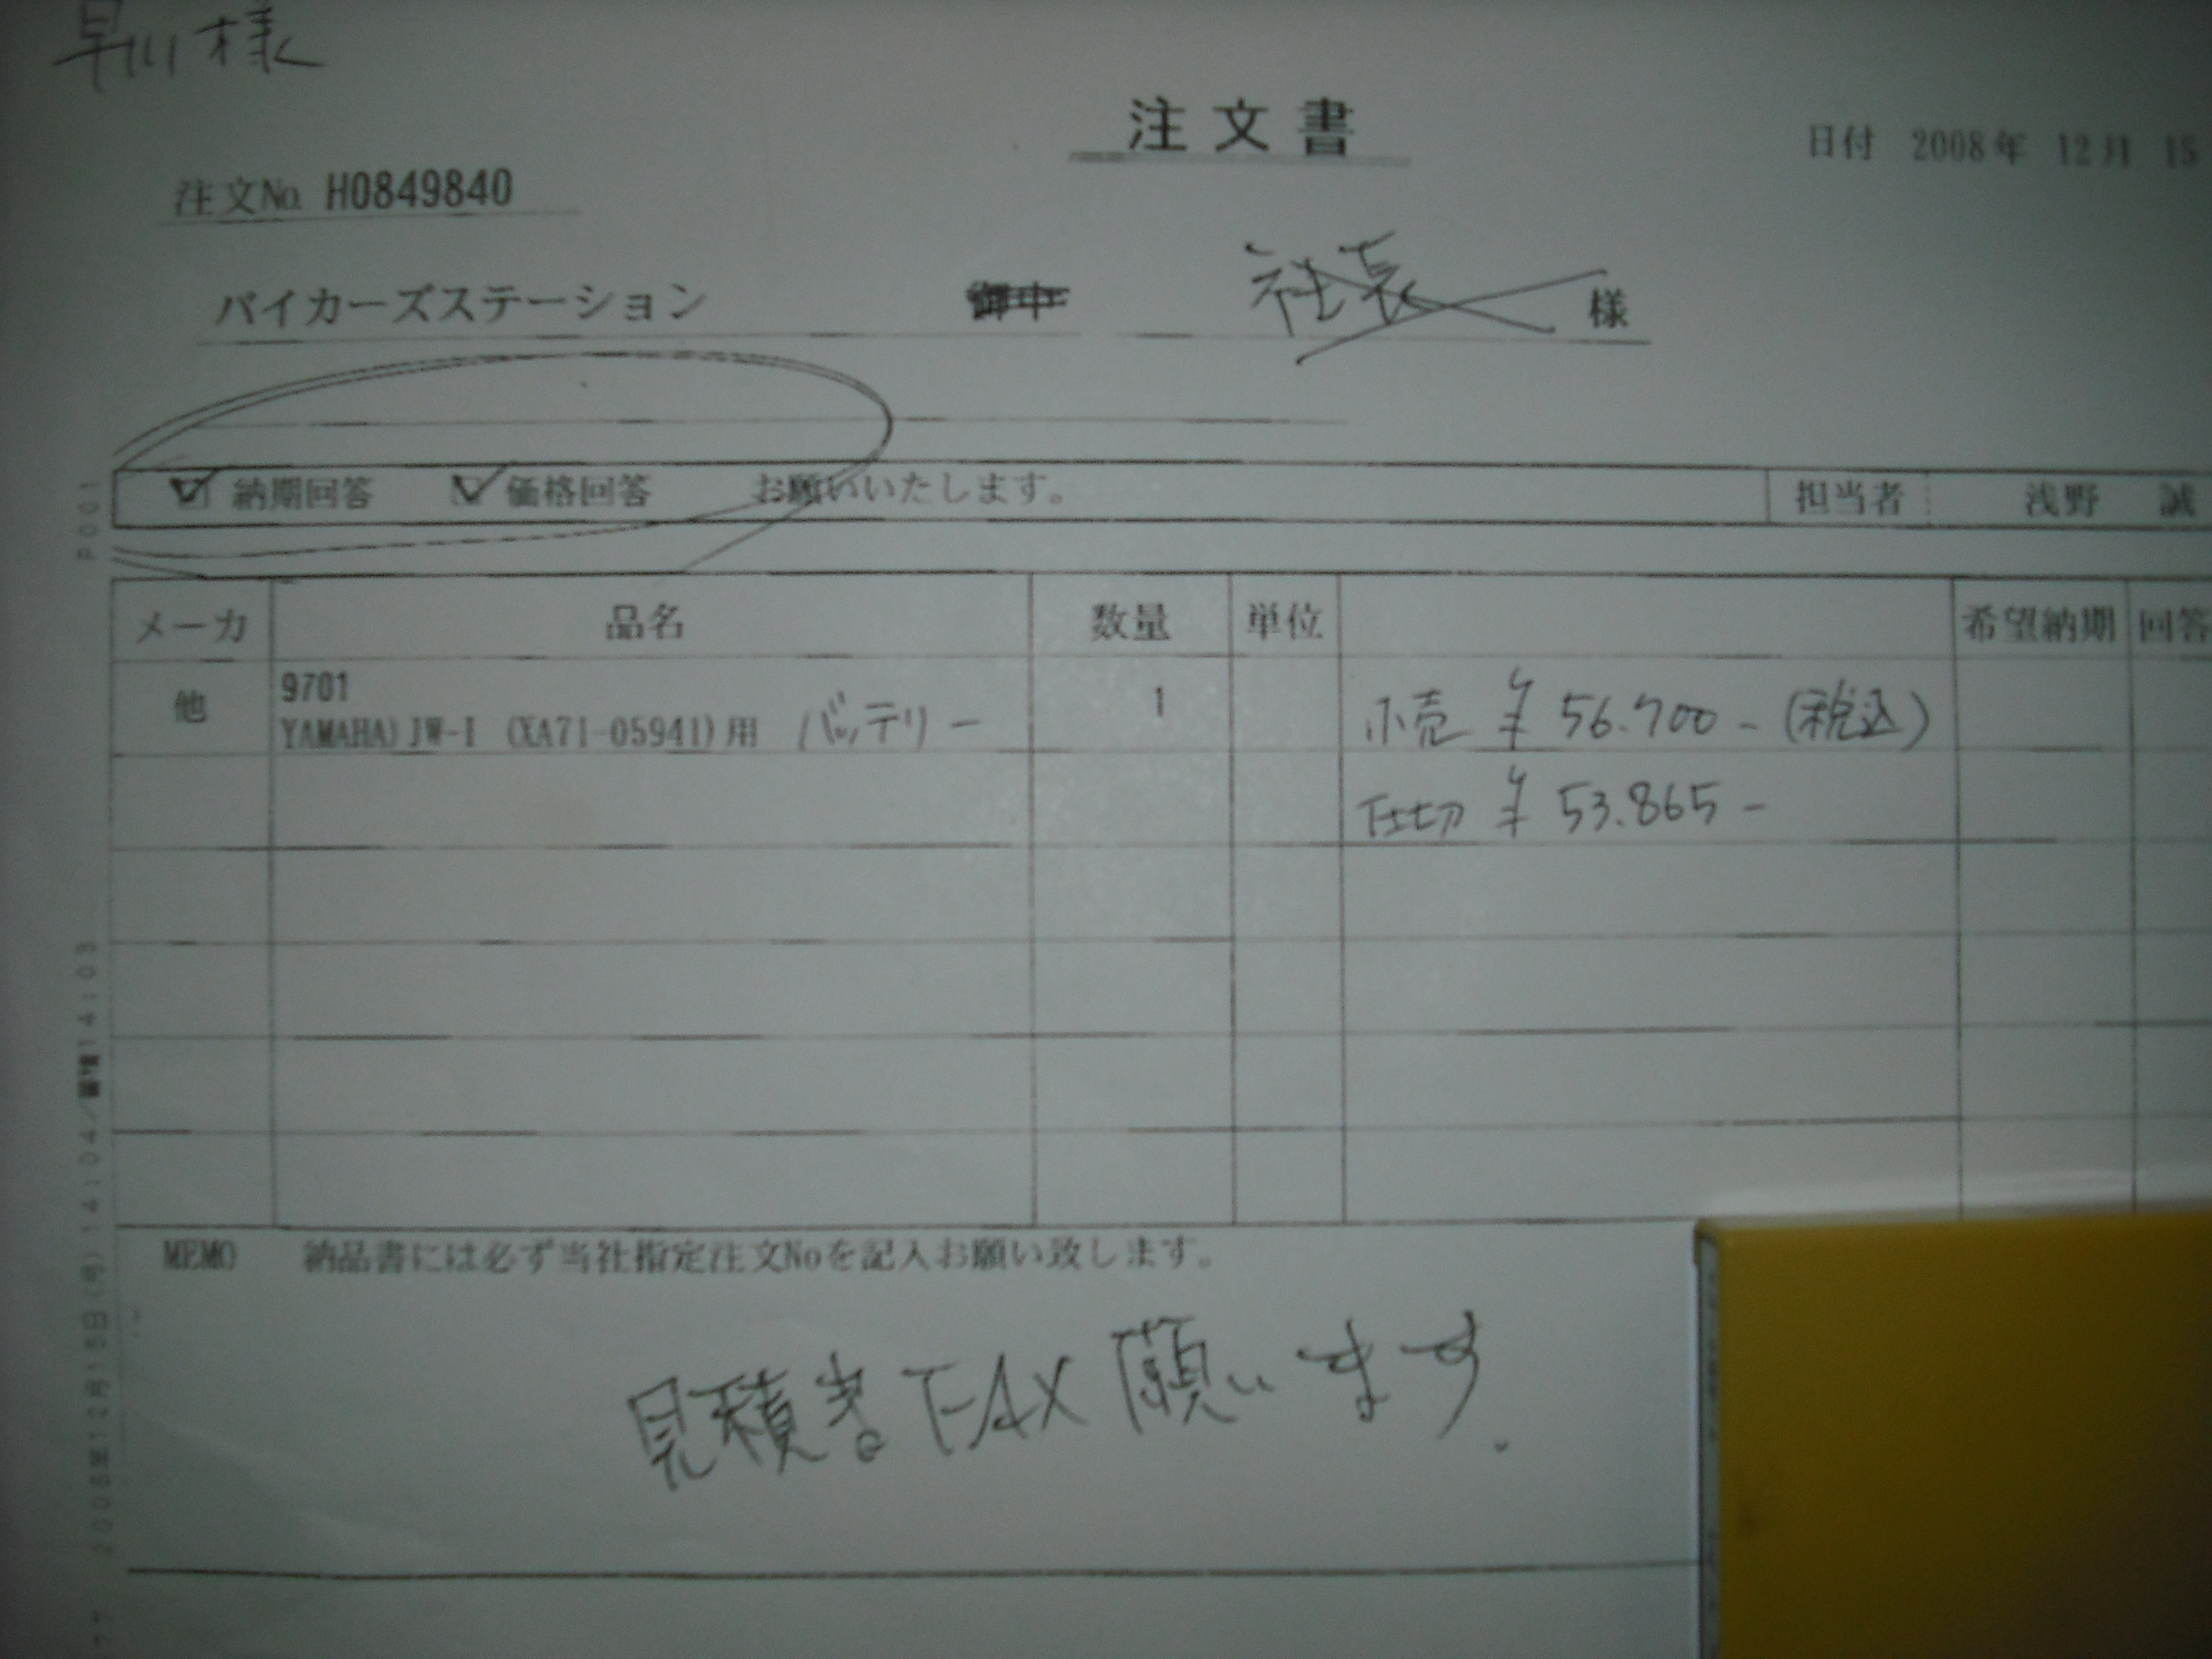 早川様
注文書
日付 2008年 12月 15
注文No. H0849840
バイカーズステーション 御中 社長 様
納期回答 価格回答 お願いいたします。 担当者 浅野 誠
P001
メーカ 品名 数量 単位 希望納期 回答
他 9701 1 小売 ¥56.700-(税込)
YAMAHA)JW-I (XA71-05941)用 バッテリー
仕切 ¥53.865-
MEMO 納品書には必ず当社指定注文Noを記入お願い致します。
見積書FAX願います.